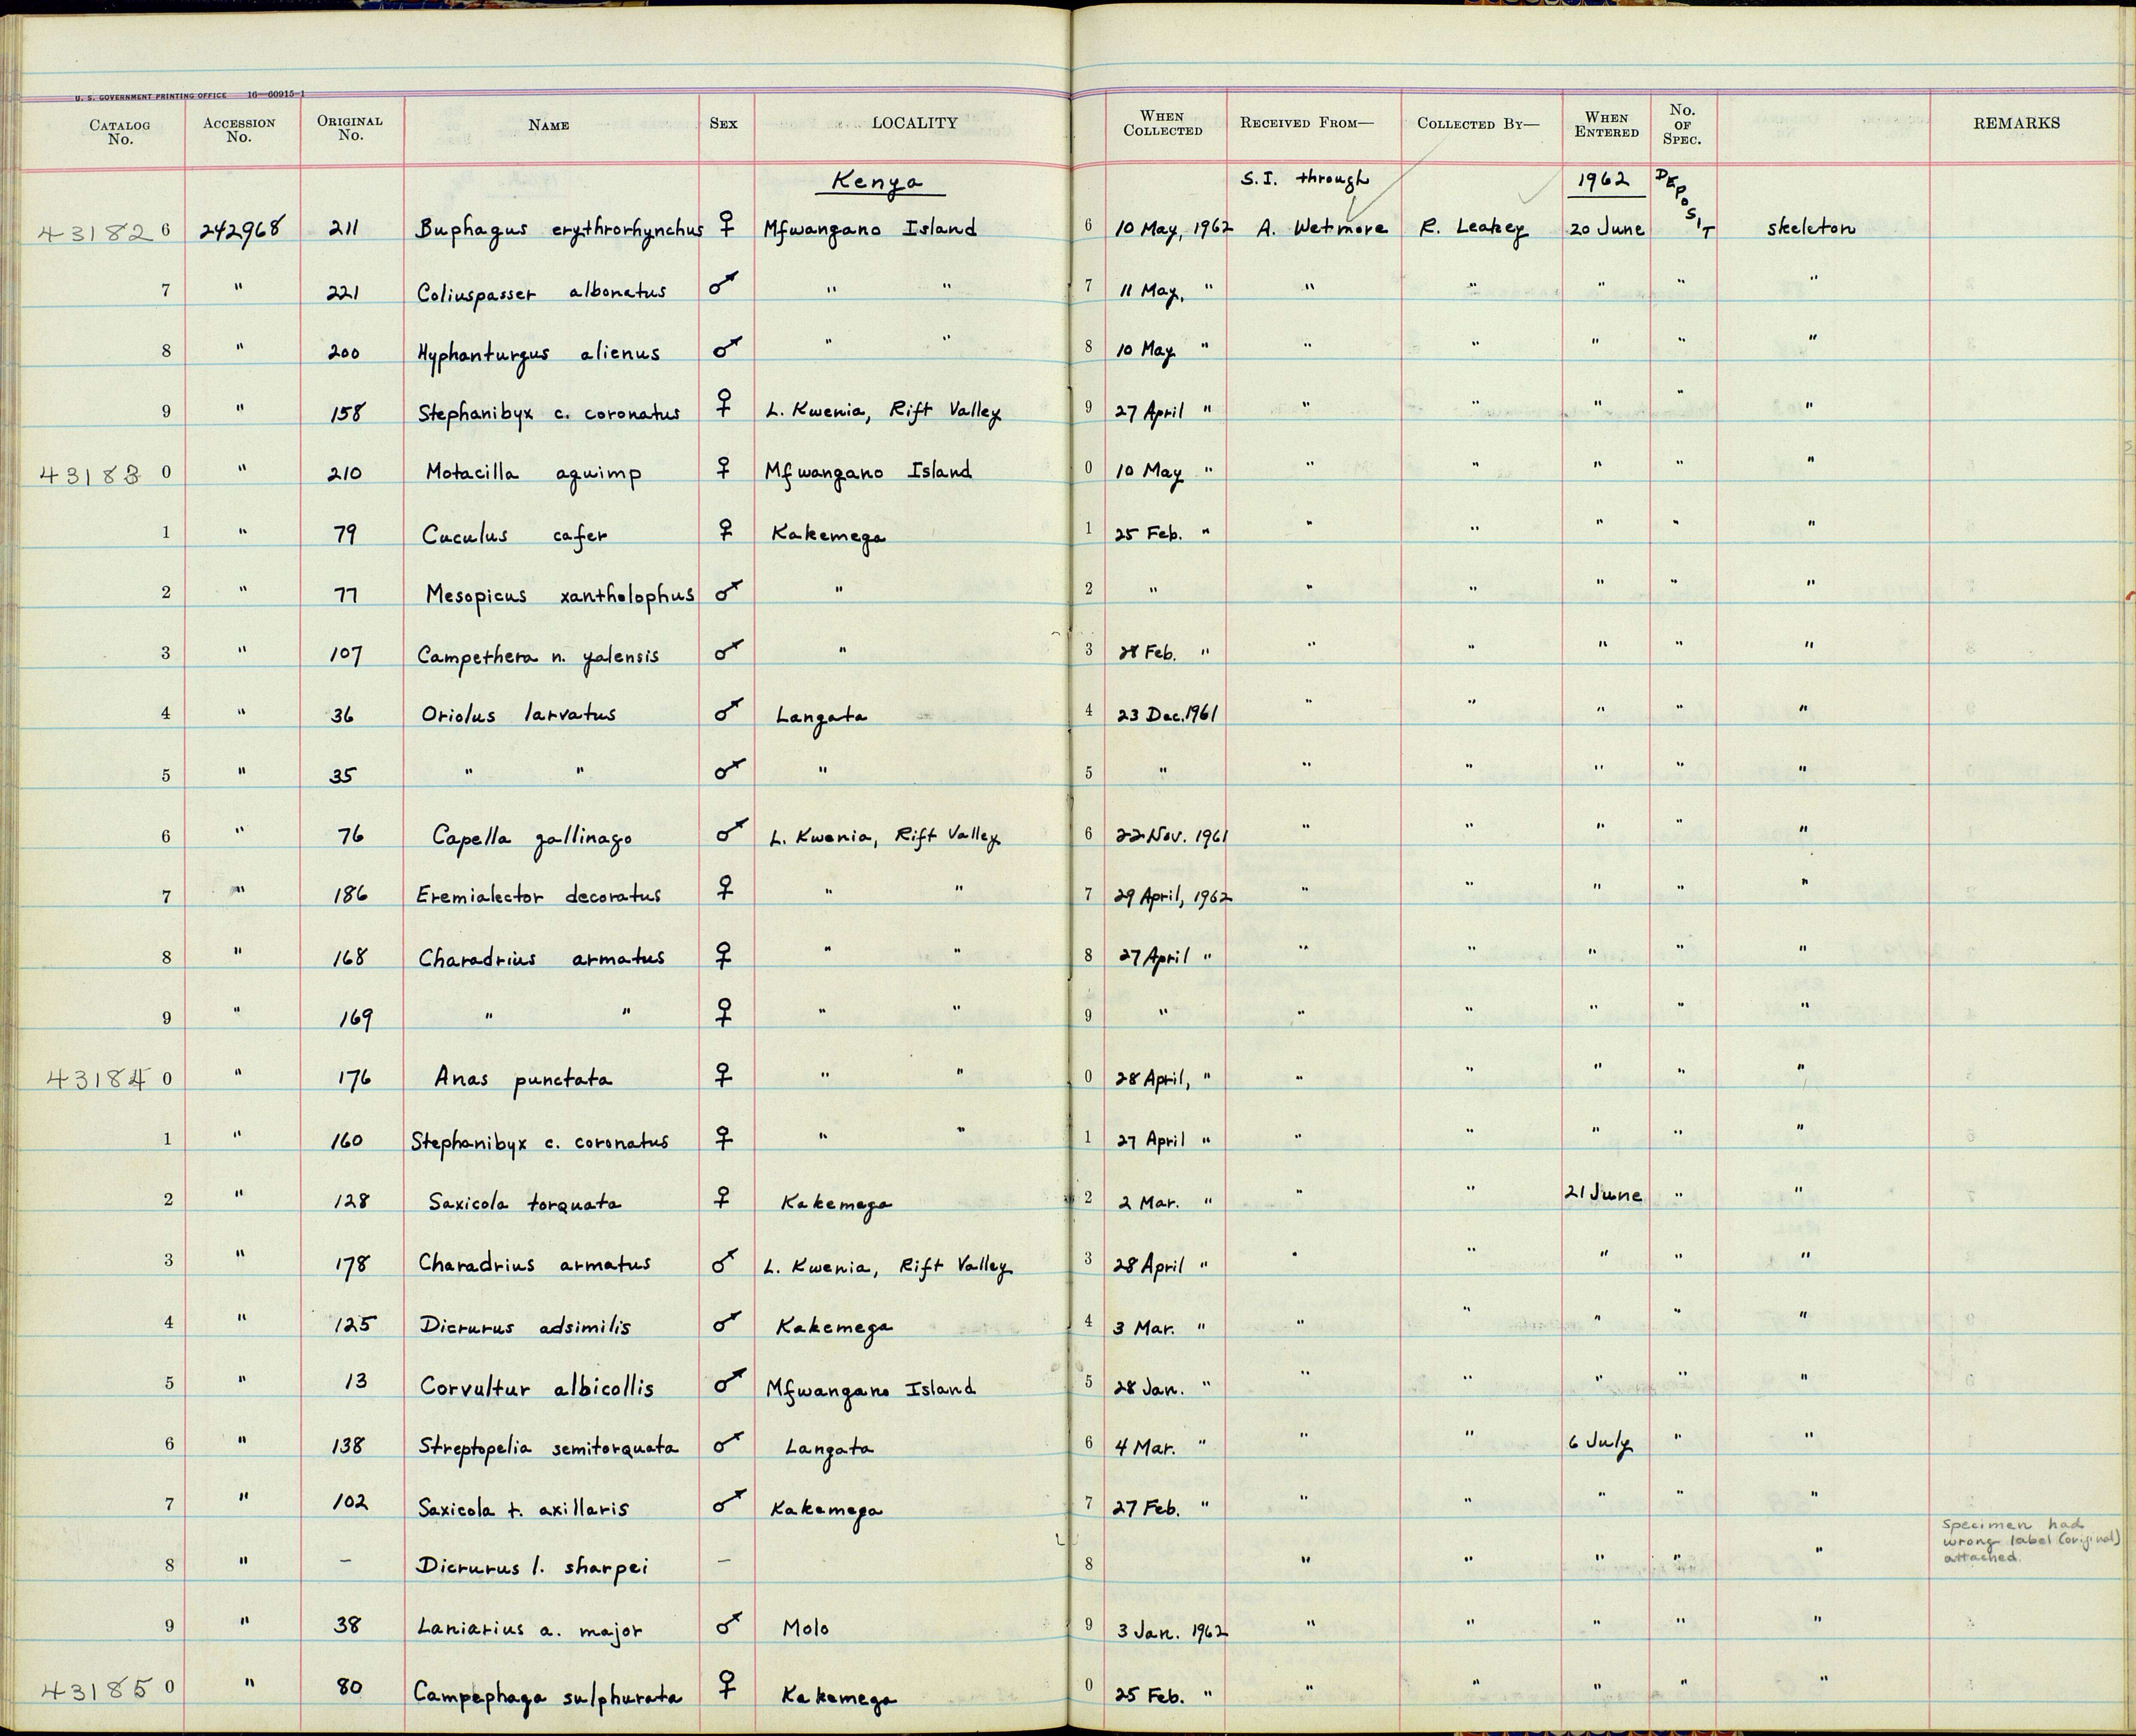 U. S. GOVERNMENT PRINTING OFFICE 16—60915-1
CATALOG No. ACCESSION No. ORIGINAL No. NAME SEX LOCALITY WHEN COLLECTED RECEIVED FROM— COLLECTED BY— WHEN ENTERED No. OF SPEC. REMARKS
Kenya S.I. through 1962 DEPOSIT
431826 242968 211 Buphagus erythrorhynchus ♀ Mfwangano Island 6 10 May, 1962 A. Wetmore R. Leakey 20 June skeleton
7 " 221 Coliuspasser albonatus ♂ " " 7 11 May, " " " " " "
8 " 200 Hyphanturgus alienus ♂ " " 8 10 May " " " " " "
9 " 158 Stephanibyx c. coronatus ♀ L. Kwenia, Rift Valley 9 27 April " " " " " "
431830 " 210 Motacilla aguimp ♀ Mfwangano Island 0 10 May " " " " " "
1 " 79 Cuculus cafer ♀ Kakemega 1 25 Feb. " " " " " "
2 " 77 Mesopicus xantholophus ♂ " 2 " " " " " "
3 " 107 Campethera n. yalensis ♂ " 3 28 Feb. " " " " " "
4 " 36 Oriolus larvatus ♂ Langata 4 23 Dec. 1961 " " " " "
5 " 35 " " ♂ " 5 " " " " " "
6 " 76 Capella gallinago ♂ L. Kwenia, Rift Valley 6 22 Nov. 1961 " " " " "
7 " 186 Eremialector decoratus ♀ " " 7 29 April, 1962 " " " " "
8 " 168 Charadrius armatus ♀ " " 8 27 April " " " " " "
9 " 169 " " ♀ " " 9 " " " " " "
431840 " 176 Anas punctata ♀ " " 0 28 April, " " " " " "
1 " 160 Stephanibyx c. coronatus ♀ " " 1 27 April " " " " " "
2 " 128 Saxicola torquata ♀ Kakemega 2 2 Mar. " " " 21 June " "
3 " 178 Charadrius armatus ♂ L. Kwenia, Rift Valley 3 28 April " " " " " "
4 " 125 Dicrurus adsimilis ♂ Kakemega 4 3 Mar. " " " " " "
5 " 13 Corvultur albicollis ♂ Mfwangano Island 5 28 Jan. " " " " " "
6 " 138 Streptopelia semitorquata ♂ Langata 6 4 Mar. " " " 6 July " "
7 " 102 Saxicola t. axillaris ♂ Kakemega 7 27 Feb. " " " " " "
8 " – Dicrurus l. sharpei – 8 " " " " " Specimen had wrong label (original) attached.
9 " 38 Laniarius a. major ♂ Molo 9 3 Jan. 1962 " " " " "
431850 " 80 Campephaga sulphurata ♀ Kakemega 0 25 Feb. " " " " " "